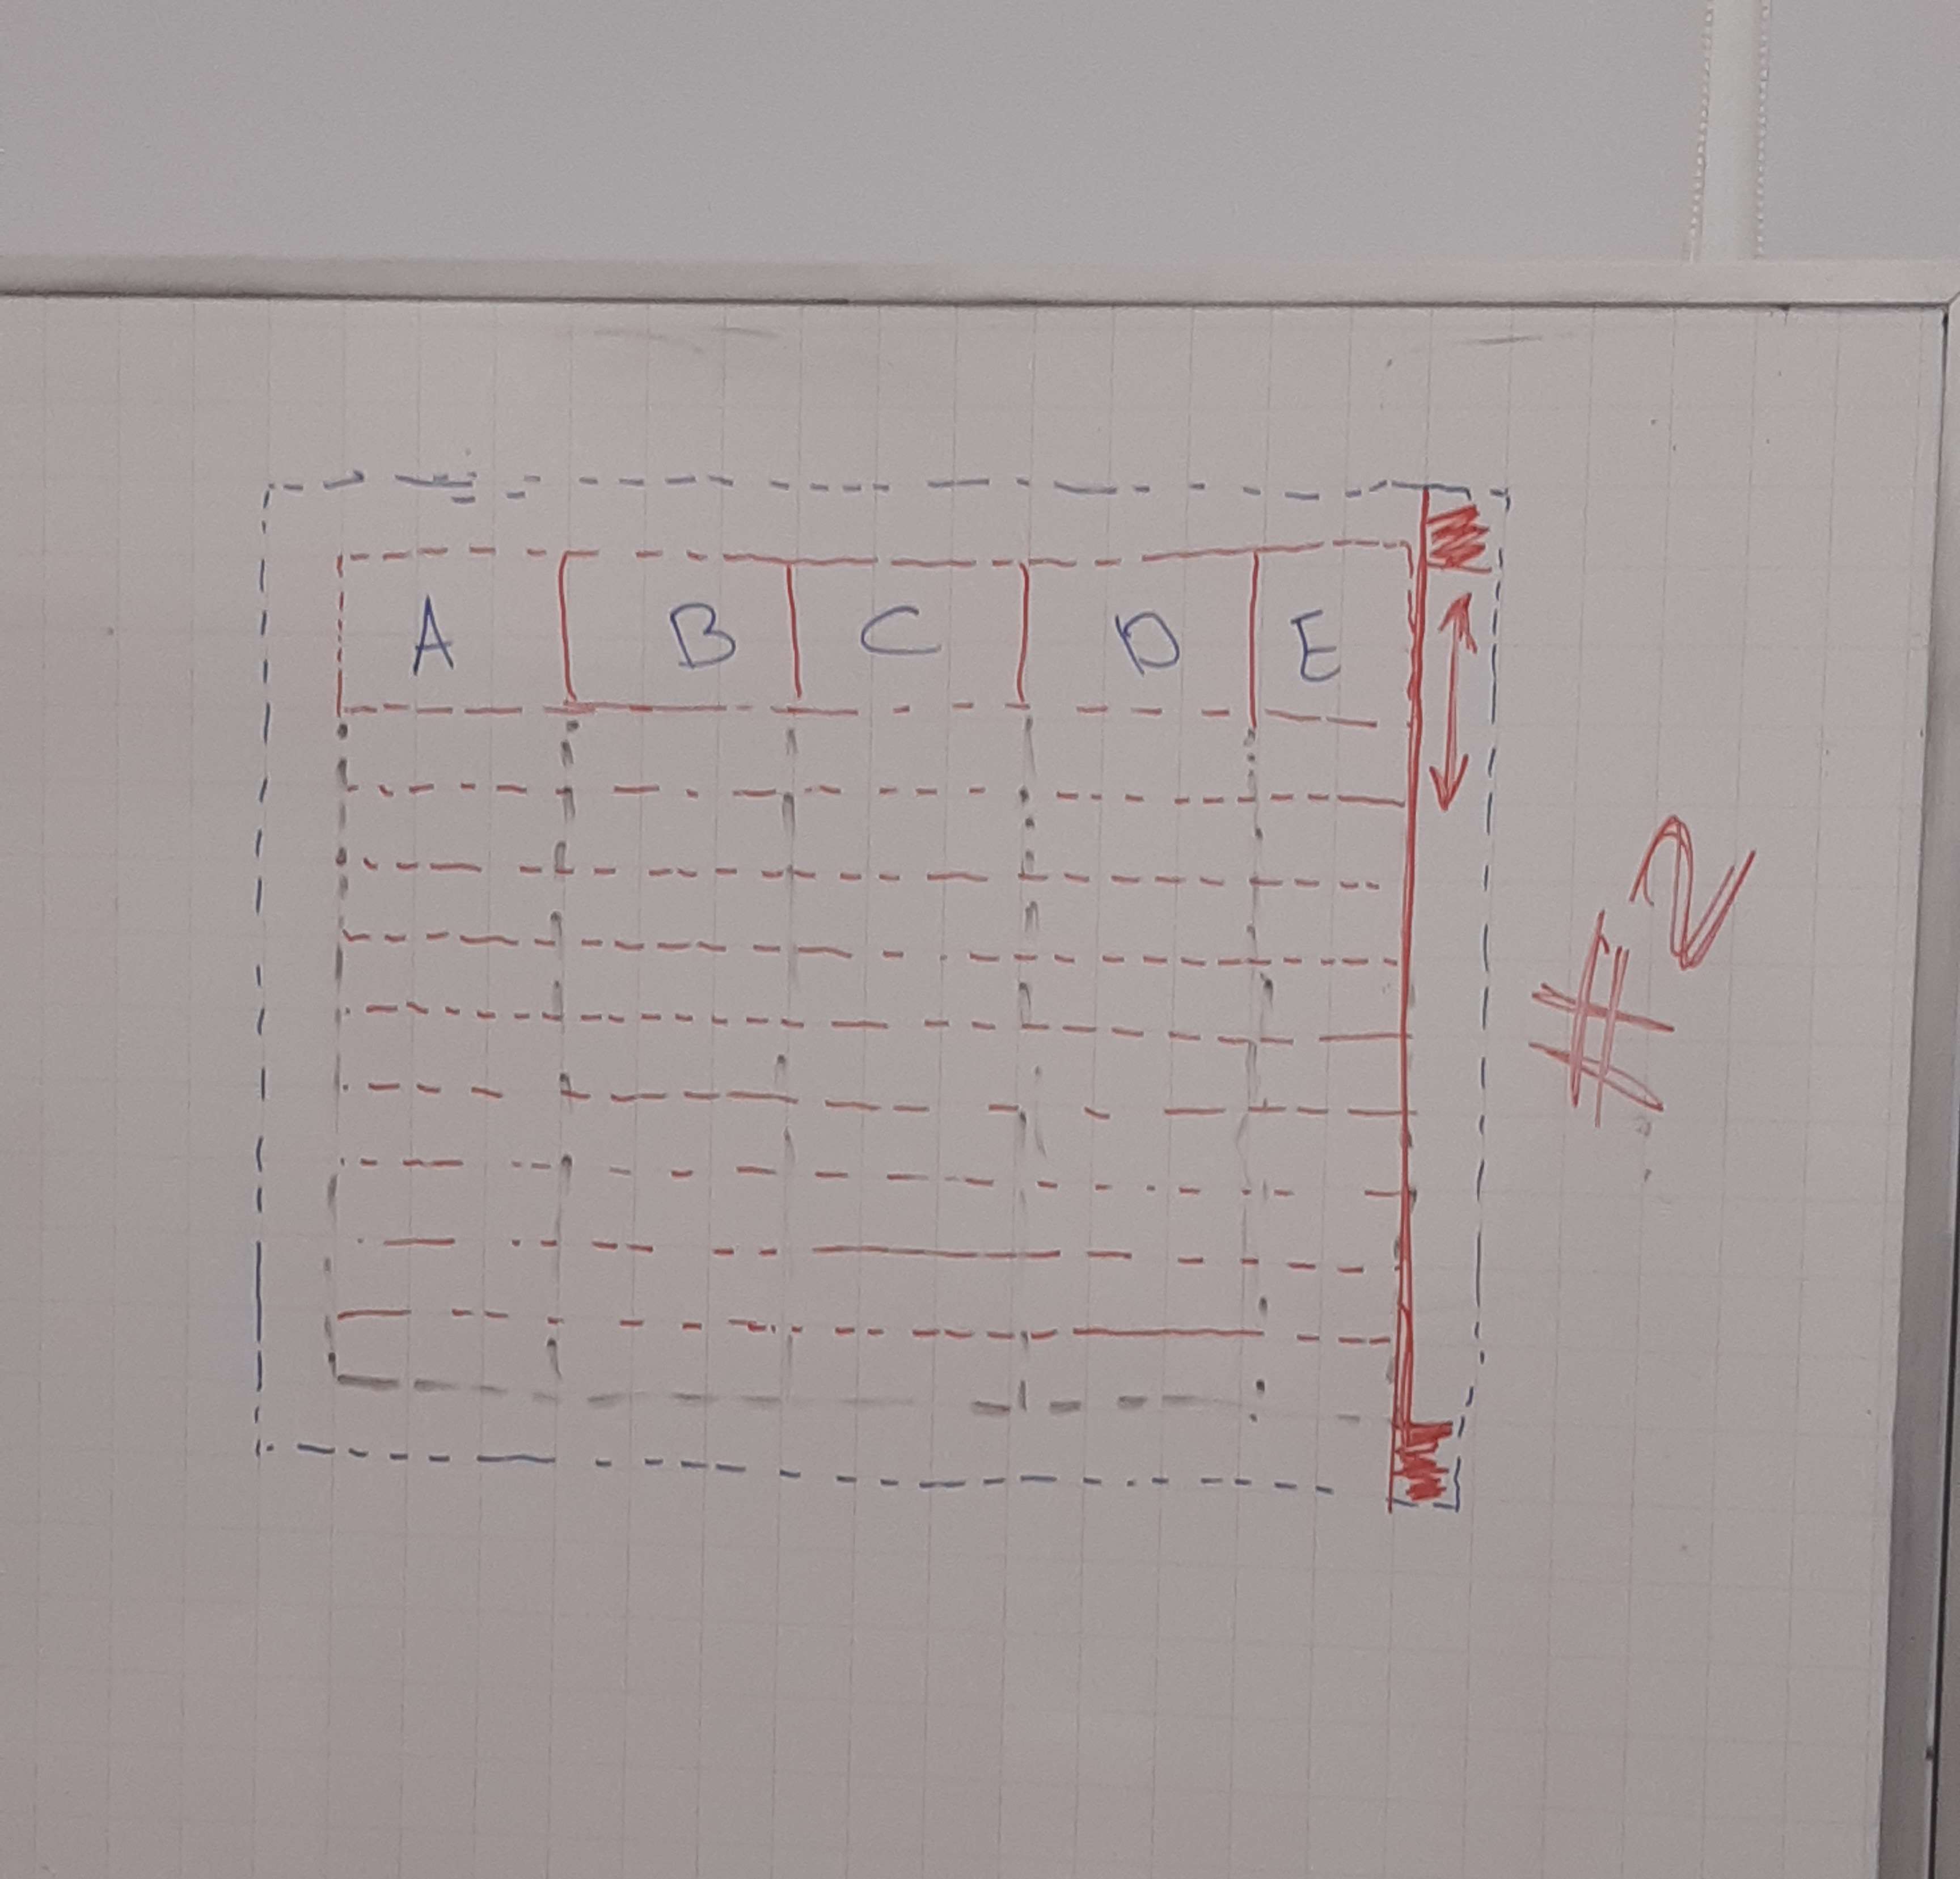 A B C D E
#2